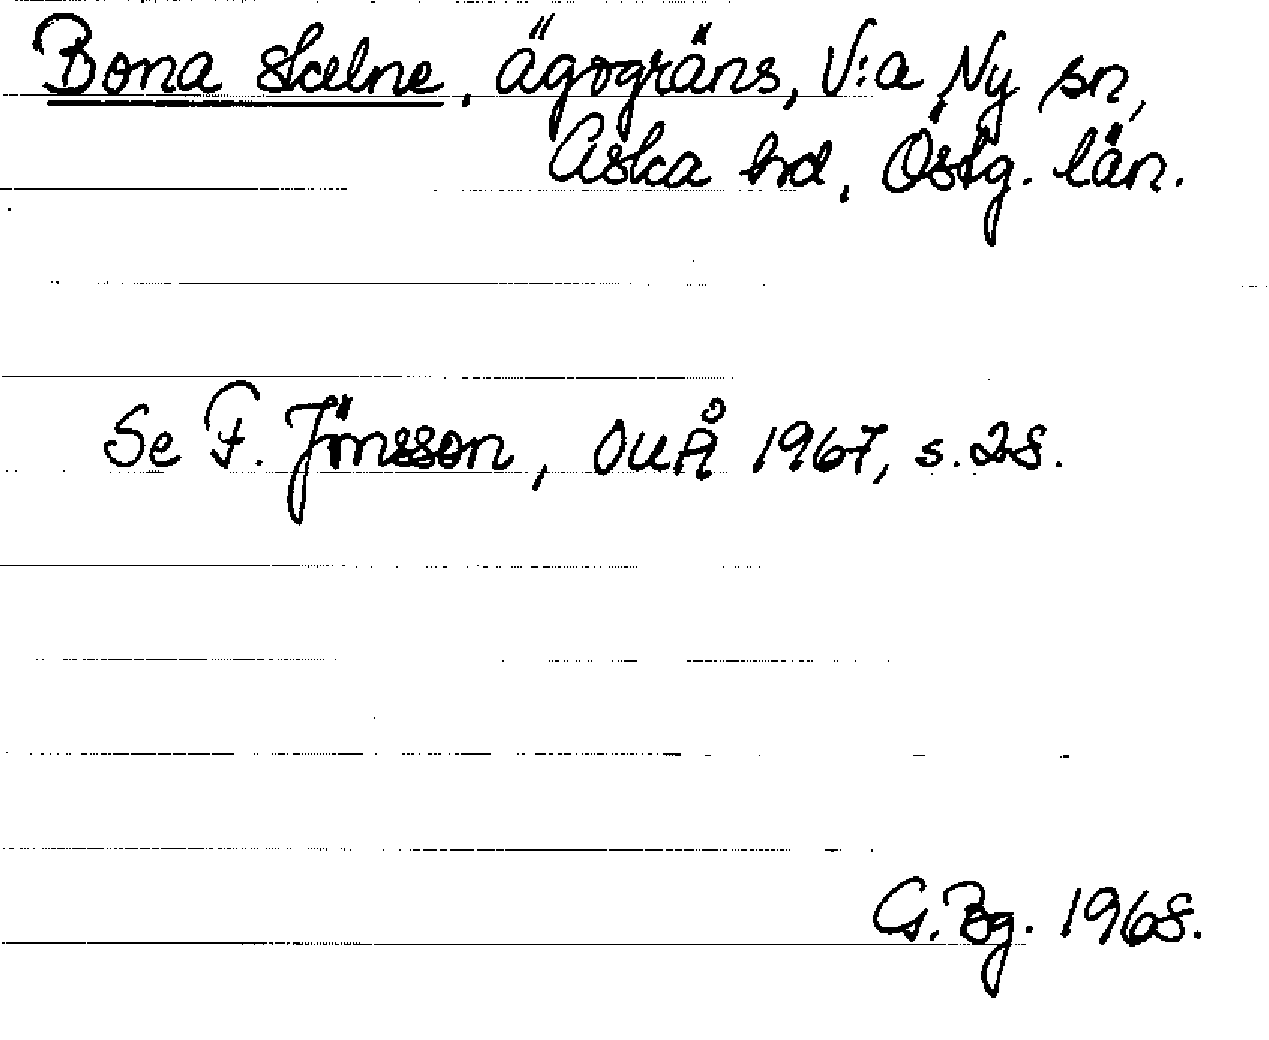 Bona skælne, ägogräns, V:a Ny sn,
Aska hd, Östg. län.
Se F. Jönsson, OUÅ 1967, s. 28.
G. Bg. 1968.